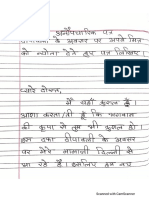 अनौपचारिक पत्र
दीपावली के अवसर पर अपने मित्र
को न्योता देते हुए पत्र लिखिए।
प्यारे दोस्त,
मैं यहाँ कुशल हूँ।
आशा करती हूँ कि भगवान
की कृपा से तुम भी कुशल हो।
इस दफा दीपावली के अवसर
पर मेरे मामाजी दिल्ली से
आ रहे हैं। इसलिए हम सब
Scanned with CamScanner